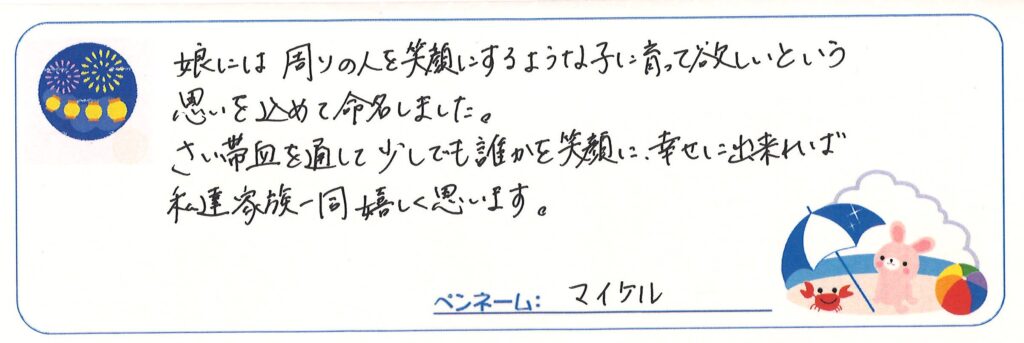 娘には 周りの人を笑顔にするような子に育って欲しいという
思いを込めて命名しました。
さい帯血を通して 少しでも誰かを笑顔に、幸せに出来れば
私達家族一同 嬉しく思います。
ペンネーム: マイケル